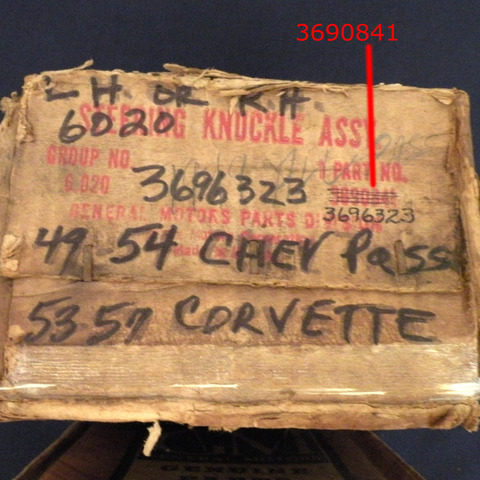 3690841
L H. OR R.H.
STEERING KNUCKLE ASSY
6020
GROUP NO. 1 PART NO.
6.020 3696323 3690841
GENERAL MOTORS PARTS DIVISION
3696323
49 54 CHEV Pass
53-57 CORVETTE
GENUINE